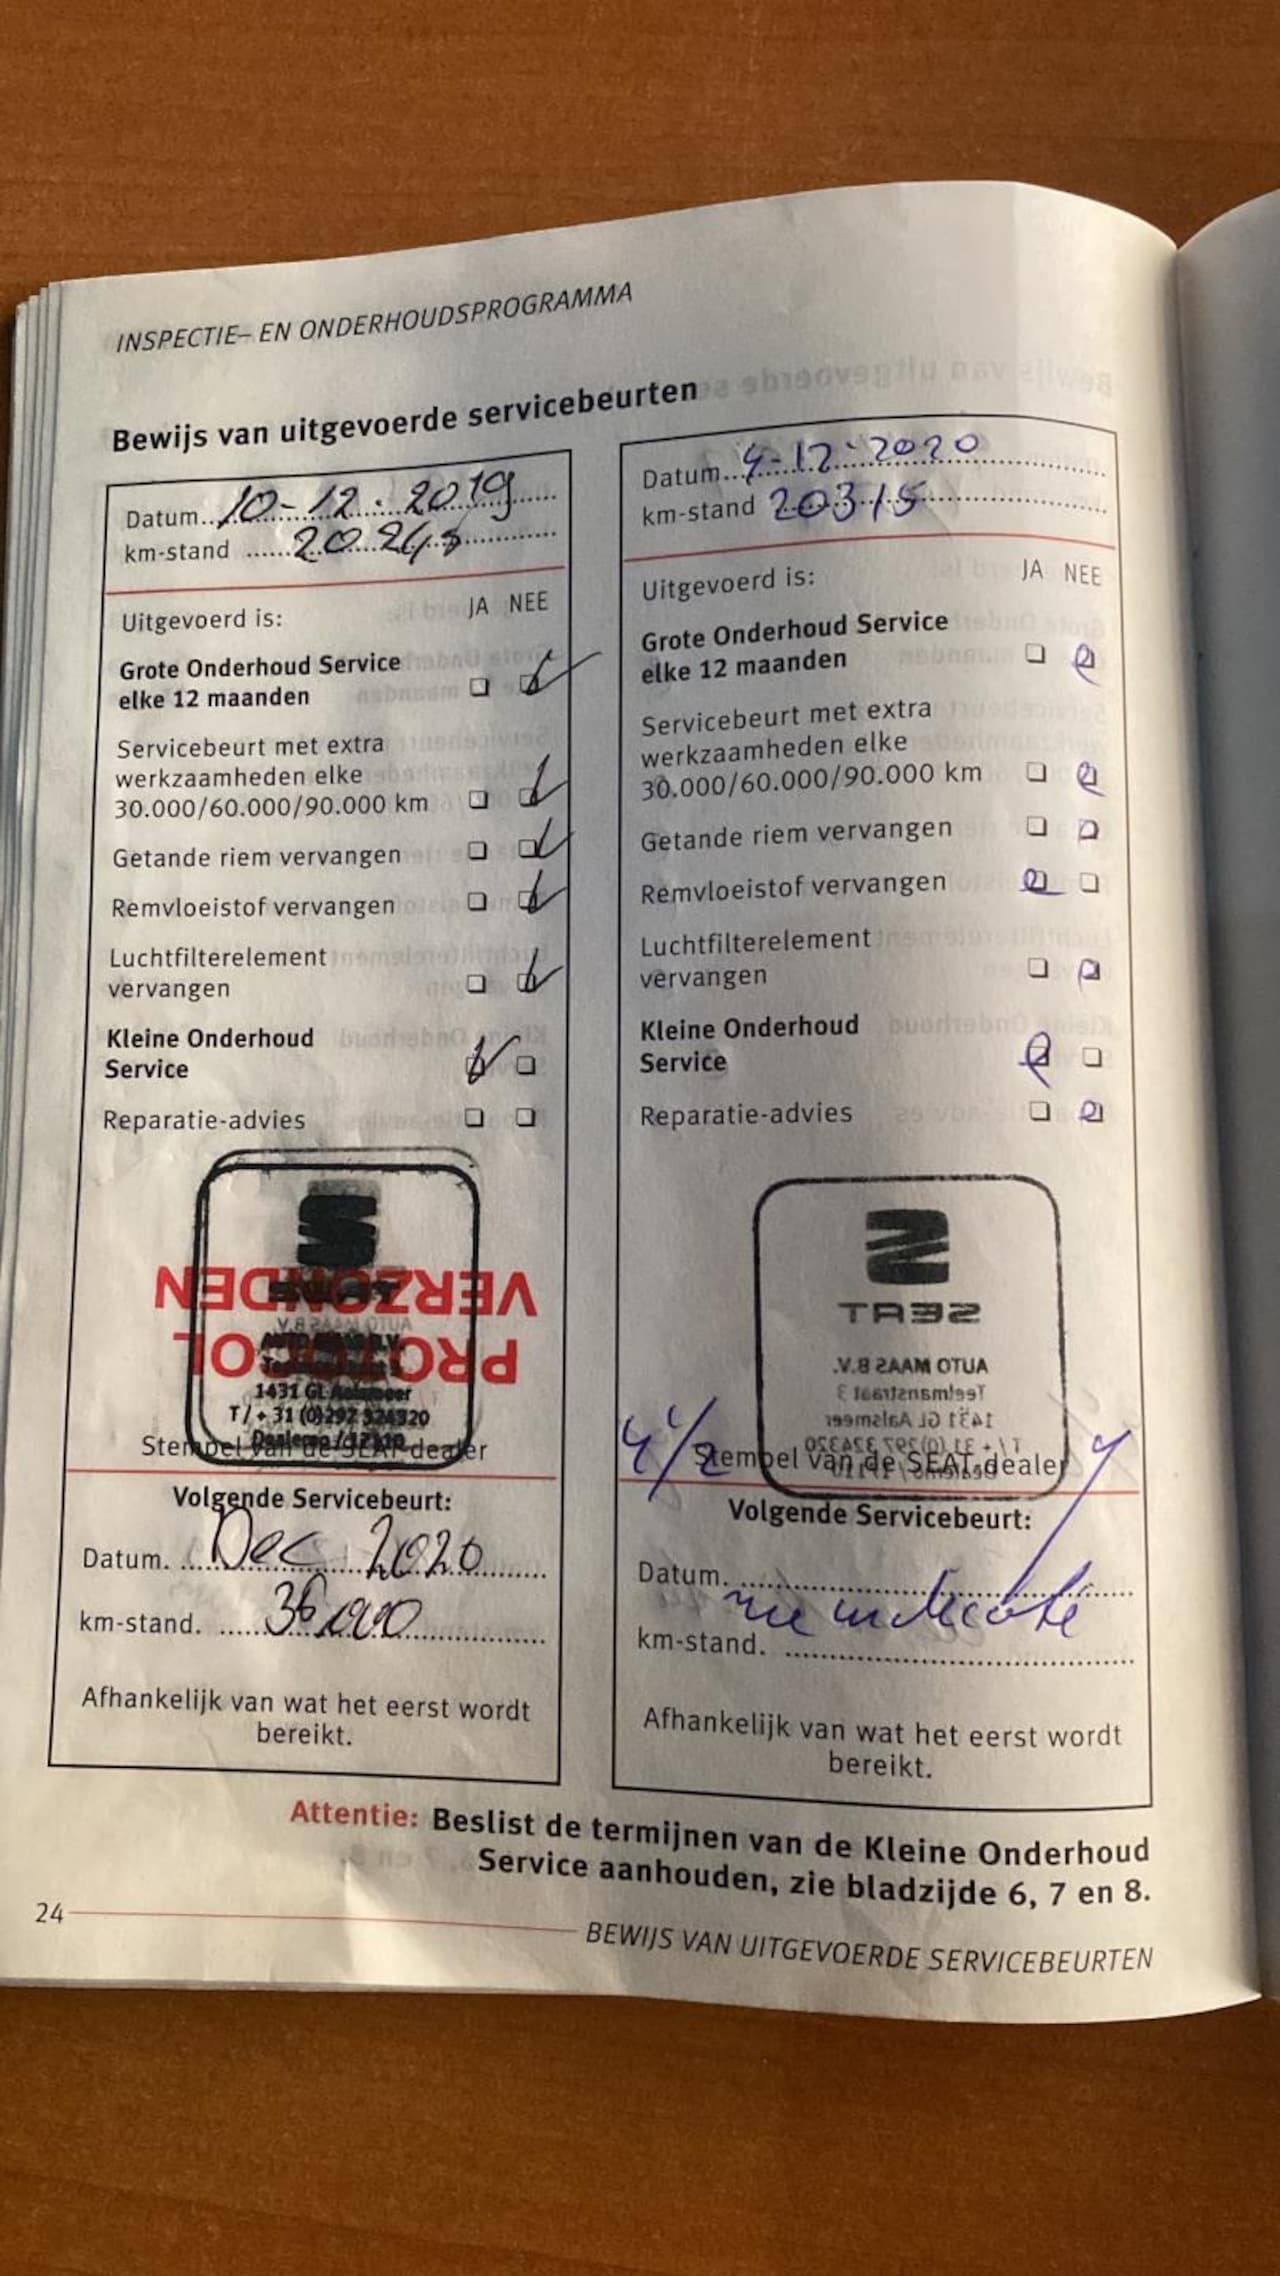 INSPECTIE– EN ONDERHOUDSPROGRAMMA
Bewijs van uitgevoerde servicebeurten
Datum 10-12-2019
km-stand
Uitgevoerd is: JA NEE
Grote Onderhoud Service
elke 12 maanden
Servicebeurt met extra
werkzaamheden elke
30.000/60.000/90.000 km
Getande riem vervangen
Remvloeistof vervangen
Luchtfilterelement
vervangen
Kleine Onderhoud
Service
Reparatie-advies
PROTOCOL
VERZONDEN
AUTO MAAS B.V.
1431 GL Aalsmeer
T / + 31 (0)297 324320
Dealerno / 12110
Stempel van de SEAT-dealer
Volgende Servicebeurt:
Datum. Dec 2020
km-stand. 36000
Afhankelijk van wat het eerst wordt
bereikt.
Datum 4-12-2020
km-stand 20315
Uitgevoerd is: JA NEE
Grote Onderhoud Service
elke 12 maanden
Servicebeurt met extra
werkzaamheden elke
30.000/60.000/90.000 km
Getande riem vervangen
Remvloeistof vervangen
Luchtfilterelement
vervangen
Kleine Onderhoud
Service
Reparatie-advies
SEAT
AUTO MAAS B.V.
Teelmanstraat 3
1431 GL Aalsmeer
T / + 31 (0)297 324320
Stempel van de SEAT-dealer
Volgende Servicebeurt:
Datum.
km-stand.
Afhankelijk van wat het eerst wordt
bereikt.
Attentie: Beslist de termijnen van de Kleine Onderhoud
Service aanhouden, zie bladzijde 6, 7 en 8.
24
BEWIJS VAN UITGEVOERDE SERVICEBEURTEN